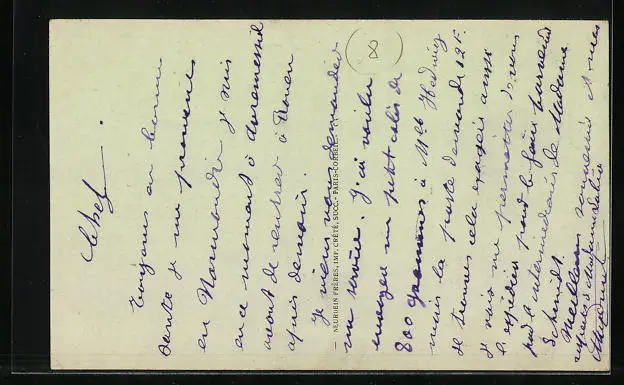 Toujours en bonne
santé je me promènes
en Normandie je suis
en ce moment à
avant de rentrer à Rouen
après demain.
Je viens vous demander
un service. J'ai voulu
envoyer un petit colis de
800 grammes à Mlle Hedwig
mais la poste demande 12F.
je trouve cela exagéré aussi
je vais me permettre de vous
l'expédier pour le faire parvenir
par l'intermédiaire de Madame
Schmidt.
Meilleurs souvenirs et mes
respects à Madame
8
— NEURDEIN FRÈRES, IMP. CRÉTÉ, SUCC. - PARIS-CORBEIL.